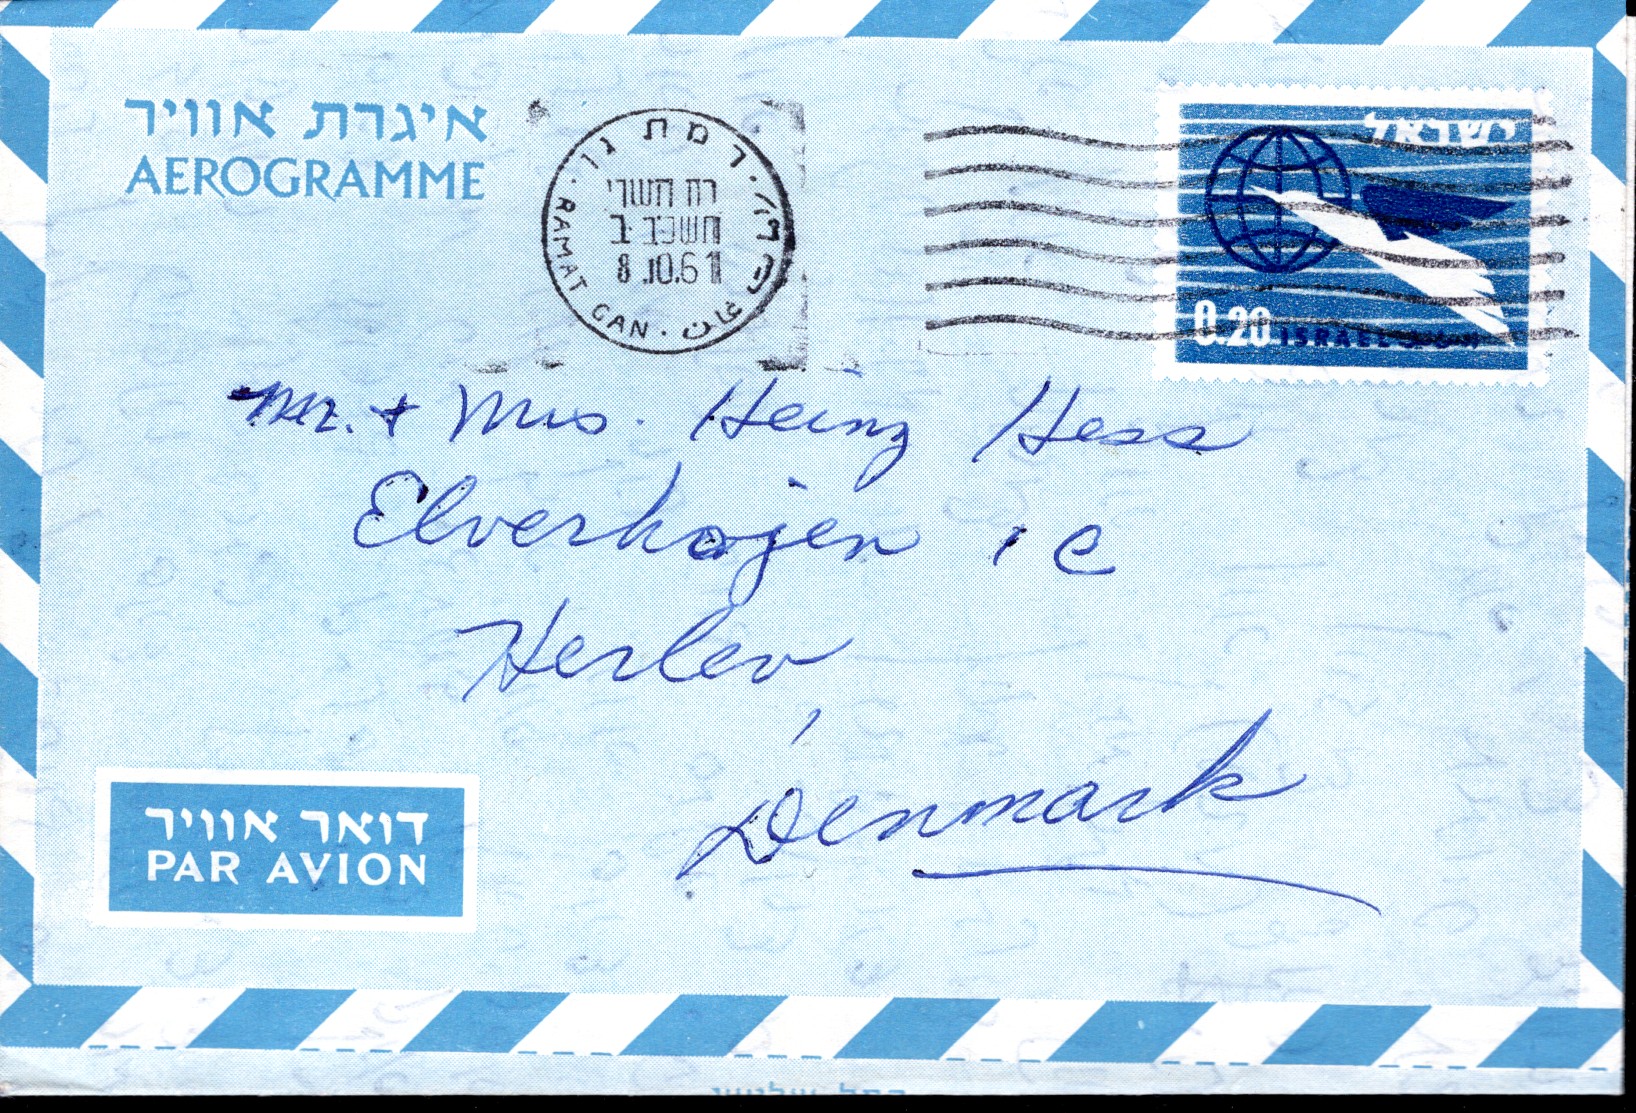 איגרת אוויר
AEROGRAMME
רמת גן
כח תשרי
תשכ"ב
8.10.61
RAMAT GAN
ישראל
0.20 ISRAEL
Mr. + Mrs. Heinz Hess
Elverhøjen 1 C
Herlev
Denmark
דואר אוויר
PAR AVION